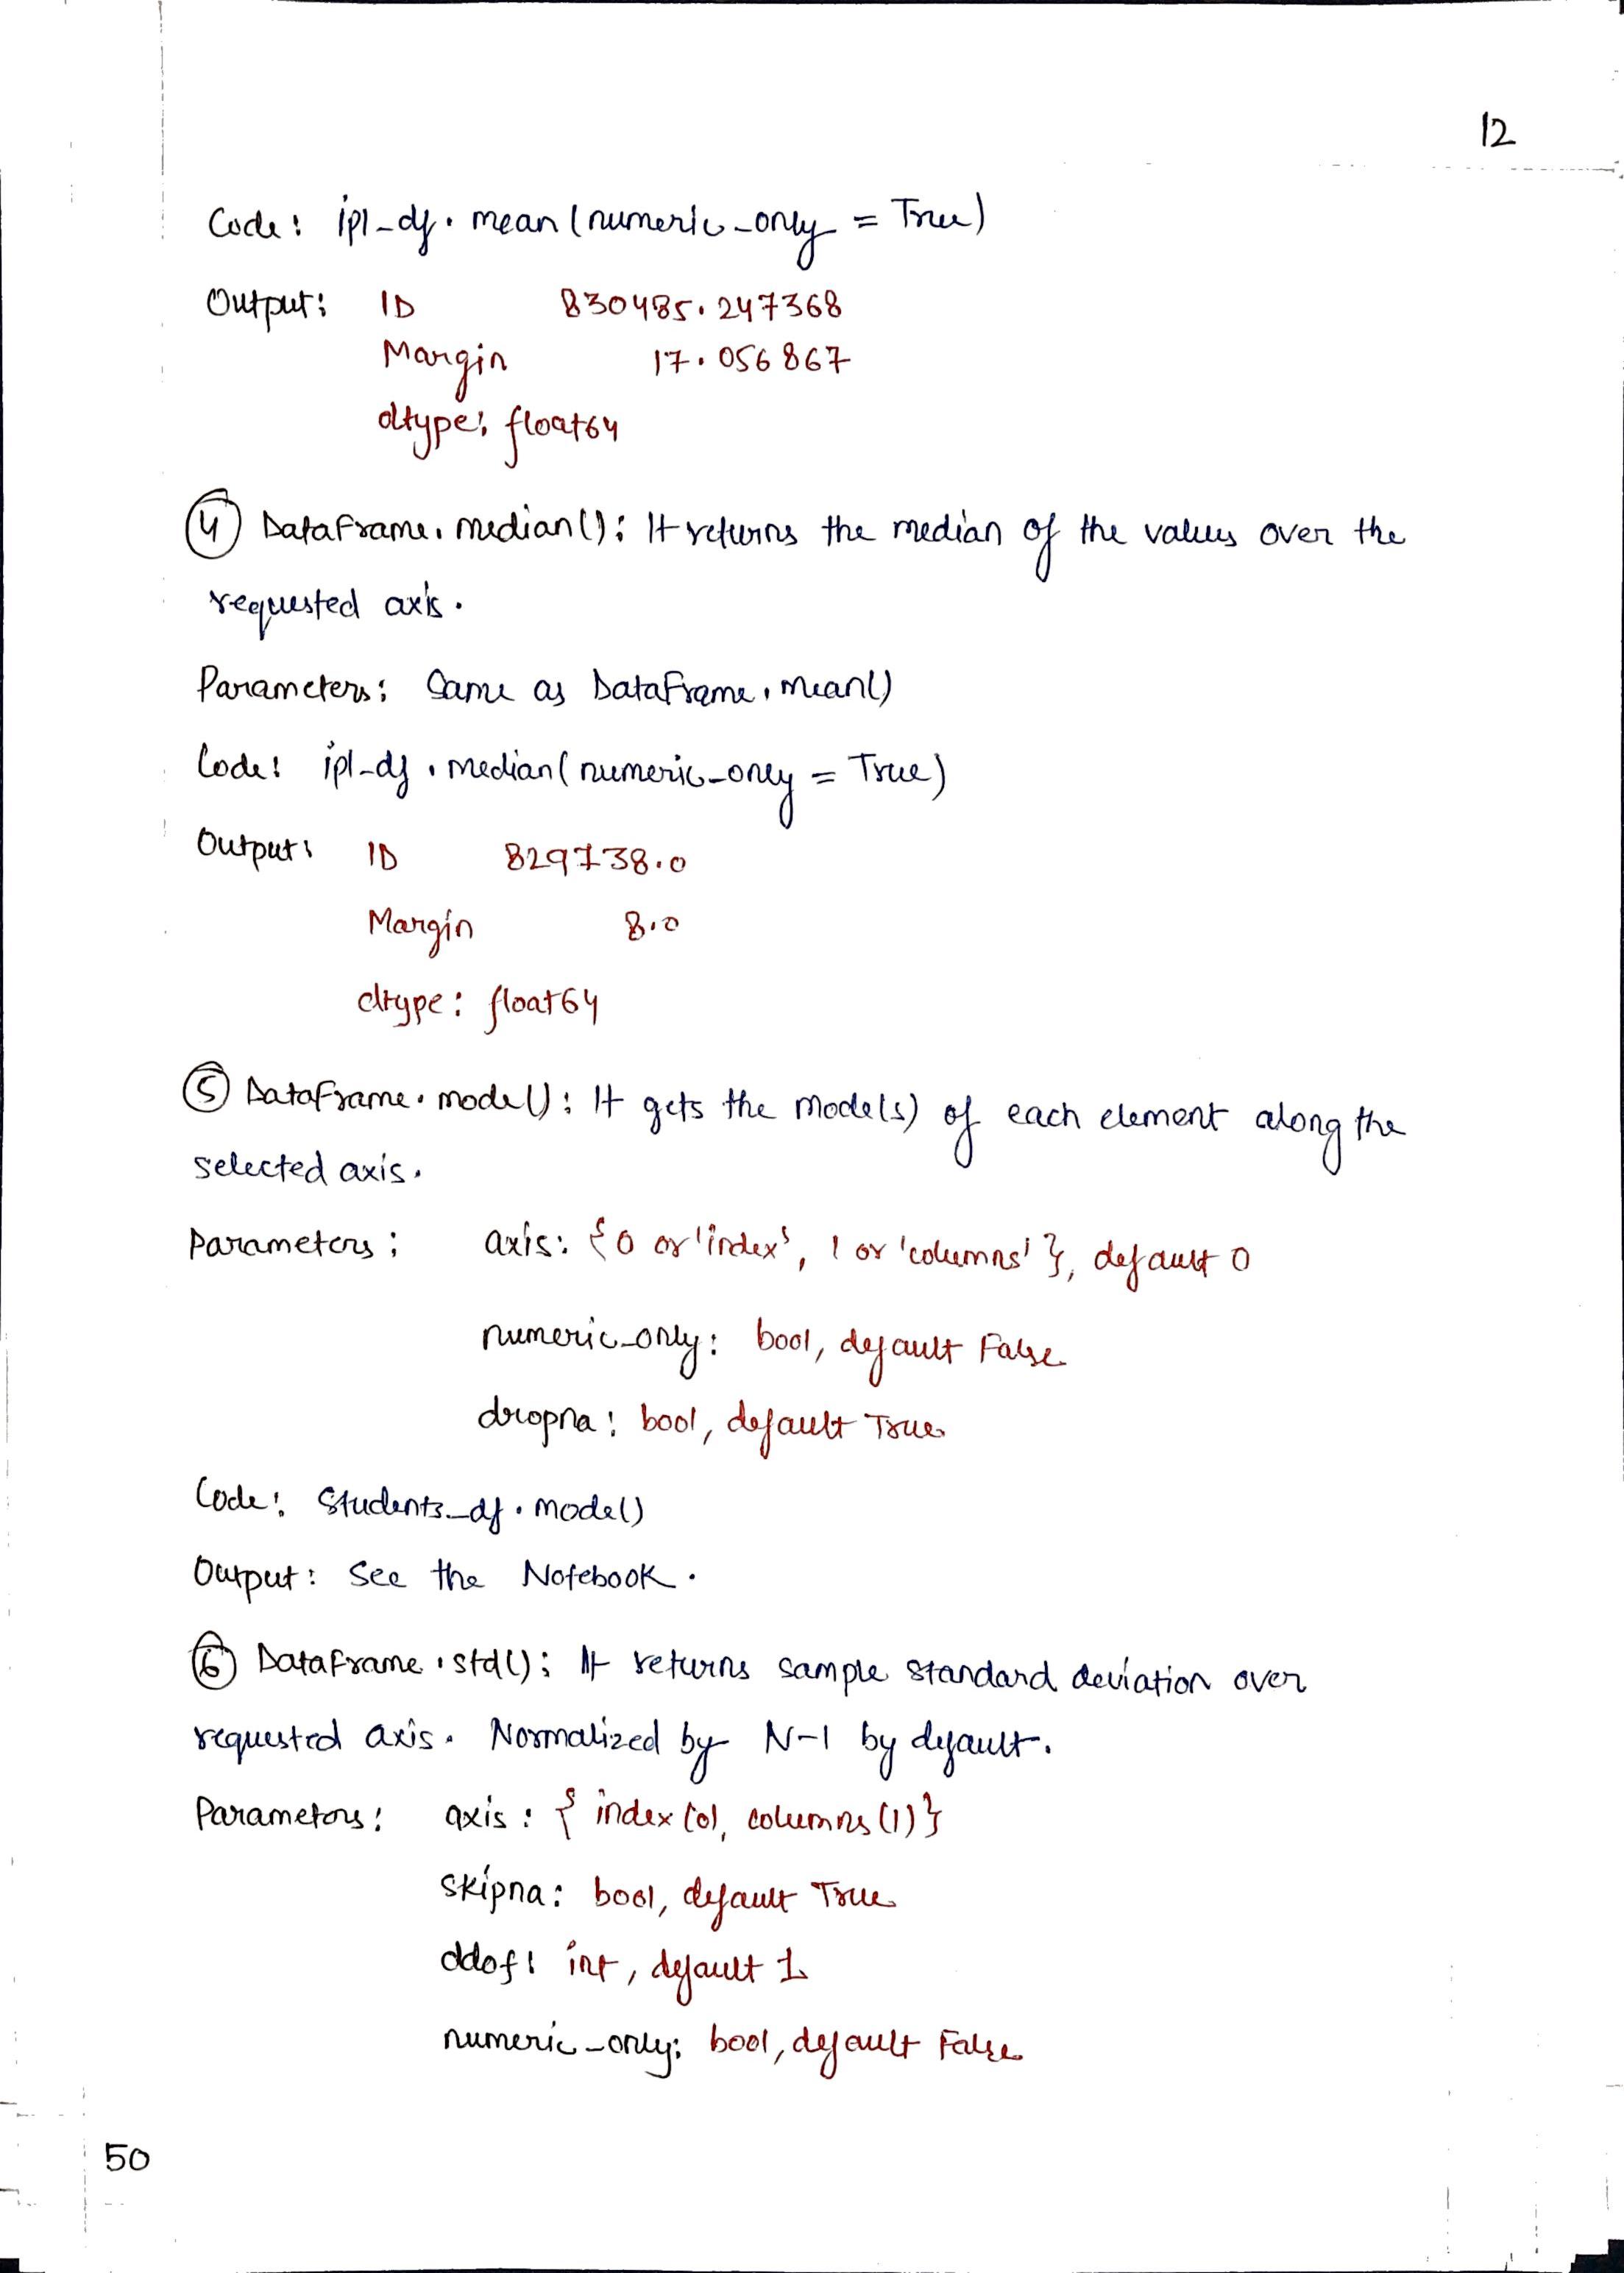 12
Code: ipl_df.mean(numeric_only = True)
Output: ID 830485.247368
Margin 17.056867
dtype: float64
④ DataFrame.median(): It returns the median of the values over the
requested axis.
Parameters: Same as DataFrame.mean()
Code: ipl_df.median(numeric_only = True)
Output: ID 829738.0
Margin 8.0
dtype: float64
⑤ DataFrame.mode(): It gets the mode(s) of each element along the
selected axis.
Parameters: axis: {0 or 'index', 1 or 'columns'}, default 0
numeric_only: bool, default False
dropna: bool, default True
Code: Students_df.mode()
Output: See the Notebook.
⑥ DataFrame.std(): It returns sample standard deviation over
requested axis. Normalized by N-1 by default.
Parameters: axis: {index(0), columns(1)}
skipna: bool, default True
ddof: int, default 1
numeric_only: bool, default False
50